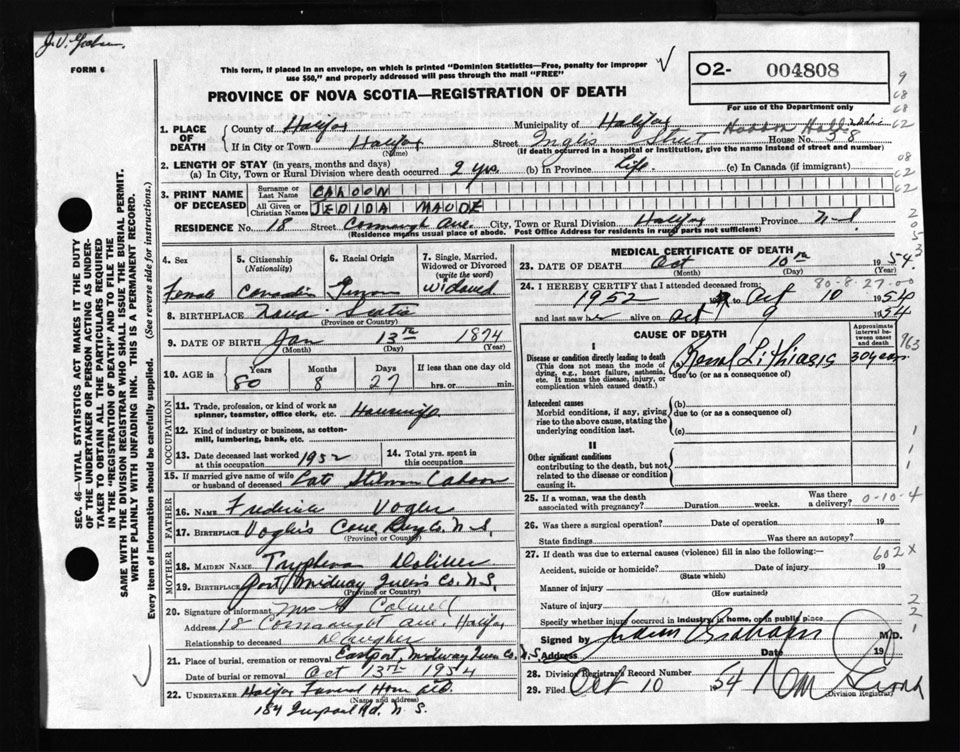 FORM 6
This form, if placed in an envelope, on which is printed "Dominion Statistics—Free, penalty for improper
use $50," and properly addressed will pass through the mail "FREE"
O2- 004808
For use of the Department only
PROVINCE OF NOVA SCOTIA—REGISTRATION OF DEATH
1. PLACE OF DEATH
County of Halifax Municipality of Halifax
If in City or Town Halifax (Name) Street Inglis Street House No. 58
(If death occurred in a hospital or institution, give the name instead of street and number)
2. LENGTH OF STAY (in years, months and days)
(a) In City, Town or Rural Division where death occurred 2 yrs. (b) In Province Life. (c) In Canada (if immigrant)
3. PRINT NAME OF DECEASED
Surname or Last Name CAHOON
All Given or Christian Names JEDIDA MAUDE
RESIDENCE No. 18 Street Connaught Ave. City, Town or Rural Division Halifax Province N.S.
(Residence means usual place of abode. Post Office Address for residents in rural parts not sufficient)
4. Sex
Female
5. Citizenship (Nationality)
Canadian
6. Racial Origin
German
7. Single, Married, Widowed or Divorced (write the word)
Widowed
8. BIRTHPLACE Nova Scotia
(Province or Country)
9. DATE OF BIRTH Jan 13th 1874
(Month) (Day) (Year)
10. AGE in
Years 80
Months 8
Days 27
If less than one day
hrs. or min.
OCCUPATION
11. Trade, profession, or kind of work as spinner, teamster, office clerk, etc. Housewife
12. Kind of industry or business, as cotton-mill, lumbering, bank, etc.
13. Date deceased last worked at this occupation 1952
14. Total yrs. spent in this occupation
15. If married give name of wife or husband of deceased Late Stilman Cahoon
FATHER
16. Name Frederick Vogler
17. Birthplace Vogler's Cove N.S.
(Province or Country)
MOTHER
18. MAIDEN NAME Tryphena
19. BIRTHPLACE Port Midway Queens Co. N.S.
(Province or Country)
20. Signature of informant Mrs
Address 18 Connaught Ave. Halifax
Relationship to deceased Daughter
21. Place of burial, cremation or removal East Port Midway Queens Co. N.S.
Date of burial or removal Oct 13th 1954
22. UNDERTAKER Halifax Funeral Home Ltd.
(Name and address)
N.S.
MEDICAL CERTIFICATE OF DEATH
23. DATE OF DEATH Oct 10th 1954.
(Month) (Day) (Year)
80-8-27-00
24. I HEREBY CERTIFY that I attended deceased from:
1952 to Oct 10 1954
and last saw her alive on Oct 9 1954
CAUSE OF DEATH
Approximate interval between onset and death
I
Disease or condition directly leading to death
(This does not mean the mode of dying, e.g., heart failure, asthenia, etc. It means the disease, injury, or complication which caused death.)
(a) Renal Lithiasis 30 years
due to (or as a consequence of)
Antecedent causes
Morbid conditions, if any, giving rise to the above cause, stating the underlying condition last.
(b)
due to (or as a consequence of)
(c)
II
Other significant conditions
contributing to the death, but not related to the disease or condition causing it.
25. If a woman, was the death associated with pregnancy? Duration weeks. Was there a delivery?
0-10-4
26. Was there a surgical operation? Date of operation 19
State findings Was there an autopsy?
27. If death was due to external causes (violence) fill in also the following:—
602X
Accident, suicide or homicide? (State which) Date of injury 19
Manner of injury
(How sustained)
Nature of injury
Specify whether injury occurred in industry, in home, or in public place
Signed by M.D.
Address Date 19
28. Division Registrar's Record Number
29. Filed Oct 10 1954
(Division Registrar)
SEC. 46—VITAL STATISTICS ACT MAKES IT THE DUTY
OF THE UNDERTAKER OR PERSON ACTING AS UNDER-
TAKER TO OBTAIN ALL THE PARTICULARS REQUIRED
IN THE "REGISTRATION OF DEATH" AND TO FILE THE
SAME WITH THE DIVISION REGISTRAR WHO SHALL ISSUE THE BURIAL PERMIT.
WRITE PLAINLY WITH UNFADING INK. THIS IS A PERMANENT RECORD.
Every item of information should be carefully supplied. (See reverse side for instructions.)